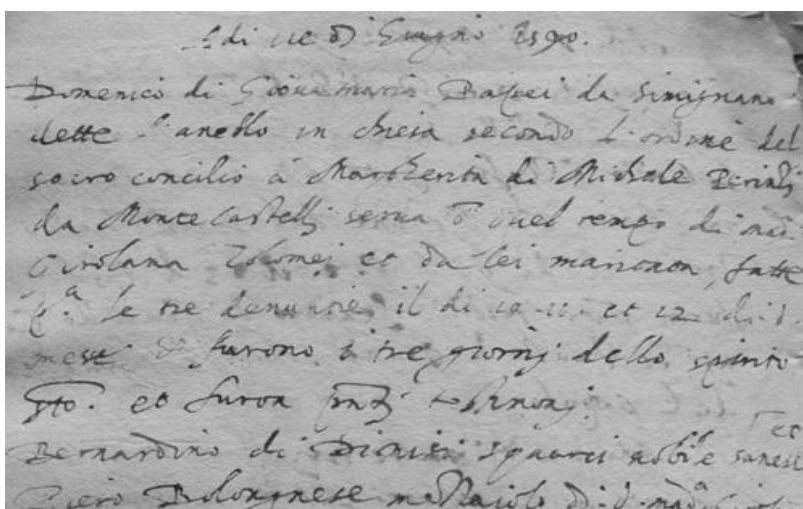 Adi di Giugno 1590.
Domenico di Giovamaria da Simignano
dette l'anello in chiesa secondo l'ordine del
sacro concilio à Margherita di Michele
da Monte Castelli serva quel tempo di mad.
Girolama Tolomei et da lei, fatte
p.ª le tre denuncie il di 10. 11. et 12 di d.
mese furono i tre giorni dello spirito
sto. et furon testimonj
Bernardino di Dionisi nobile sanese
Piero Bolognese di d. mad.ª